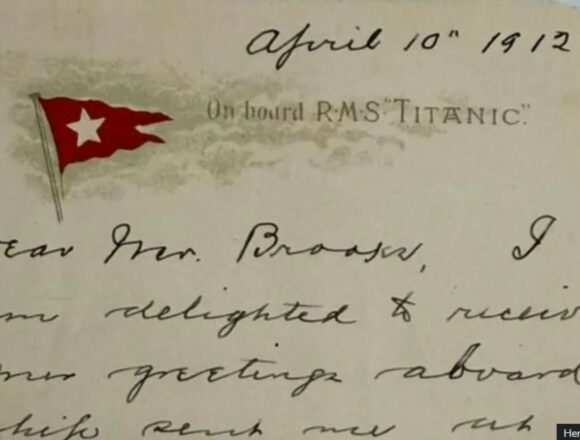 April 10" 1912
On board R·M·S "TITANIC."
ear Mr. Brooks, I
m delighted to receiv
greetings aboard
sent me at
Her